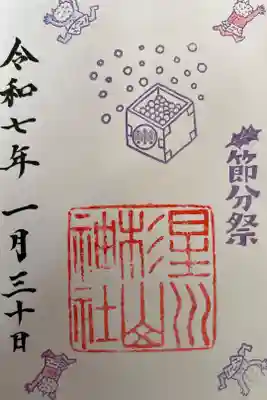 節分祭
星川
杉山
神社
令和七年 一月三十日